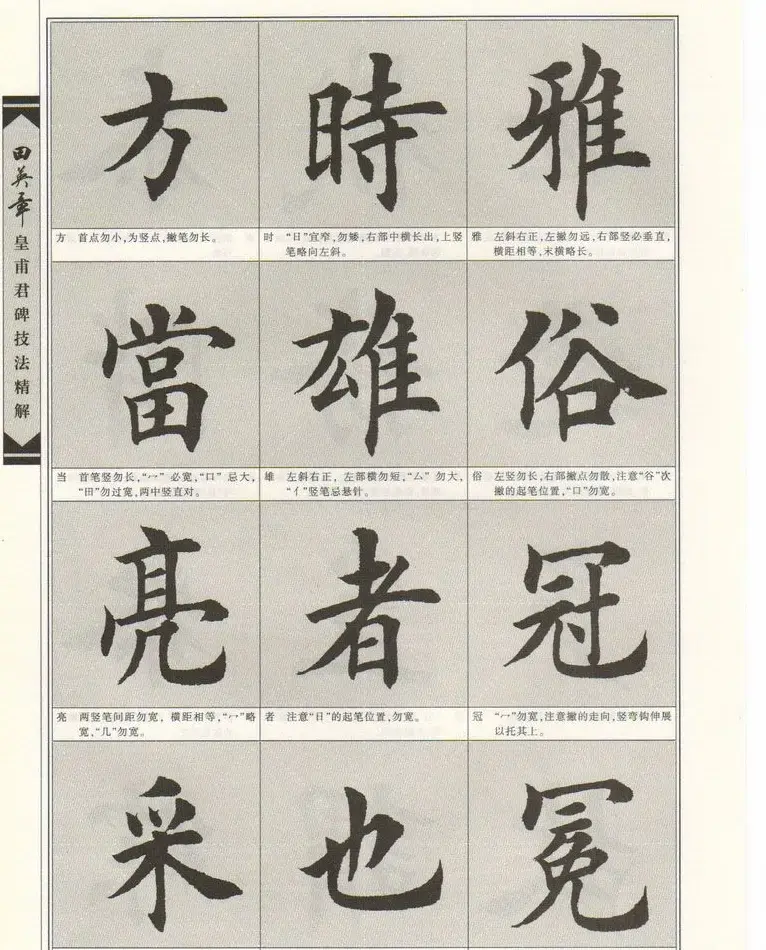 田英章
皇甫君碑技法精解
方 時 雅
方 首点勿小,为竖点,撇笔勿长。
时 “日”宜窄,勿矮,右部中横长出,上竖
笔略向左斜。
雅 左斜右正,左撇勿远,右部竖必垂直,
横距相等,末横略长。
當 雄 俗
当 首笔竖勿长,“冖”必宽,“口”忌大,
“田”勿过宽,两中竖直对。
雄 左斜右正,左部横勿短,“厶”勿大,
“亻”竖笔忌悬针。
俗 左竖勿长,右部撇点勿散,注意“谷”次
撇的起笔位置,“口”勿宽。
亮 者 冠
亮 两竖笔间距勿宽,横距相等,“冖”略
宽,“几”勿宽。
者 注意“日”的起笔位置,勿宽。
冠 “冖”勿宽,注意撇的走向,竖弯钩伸展
以托其上。
采 也 冕